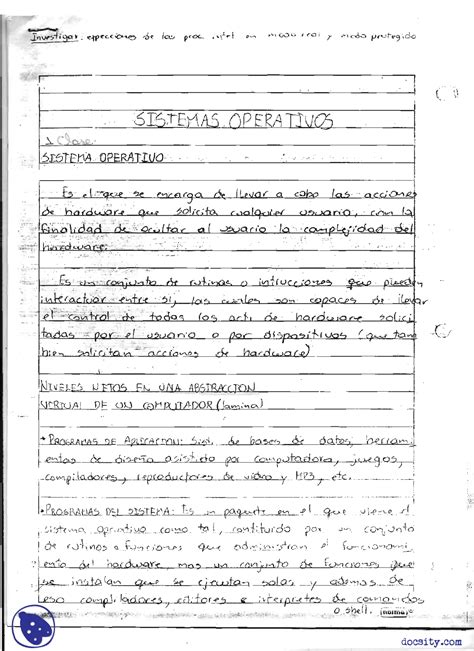 Investigar: direcciones de los proc. intel en modo real y modo protegido
SISTEMAS OPERATIVOS
1 Clase
SISTEMA OPERATIVO
Es el que se encarga de llevar a cabo las acciones
de hardware que solicita cualquier usuario, con la
finalidad de ocultar al usuario la complejidad del
hardware.
Es un conjunto de rutinas o intrucciones que pueden
interactuar entre si, las cuales son capaces de llevar
el control de todas los acti de hardware solici
tadas por el usuario o por dispositivos (que tam
bien solicitan acciones de hardware)
NIVELES VISTOS EN UNA ABSTRACCION
VIRTUAL DE UN COMPUTADOR (lamina)
• PROGRAMAS DE APLICACION: Sist. de bases de datos, herram
entas de diseño asistido por computadora, juegos,
compiladores, reproductores de video y MP3, etc.
• PROGRAMAS DEL SISTEMA: Es un paquete en el que viene el
sistema operativo como tal, contituido por un conjunto
de rutinas o funciones que administran el funcionami
ento del hardware, mas un conjunto de funciones que
se instalan que se ejecutan solas y ademas de
eso compiladores, editores e interpretes de comandos
o shell.
docsity.com